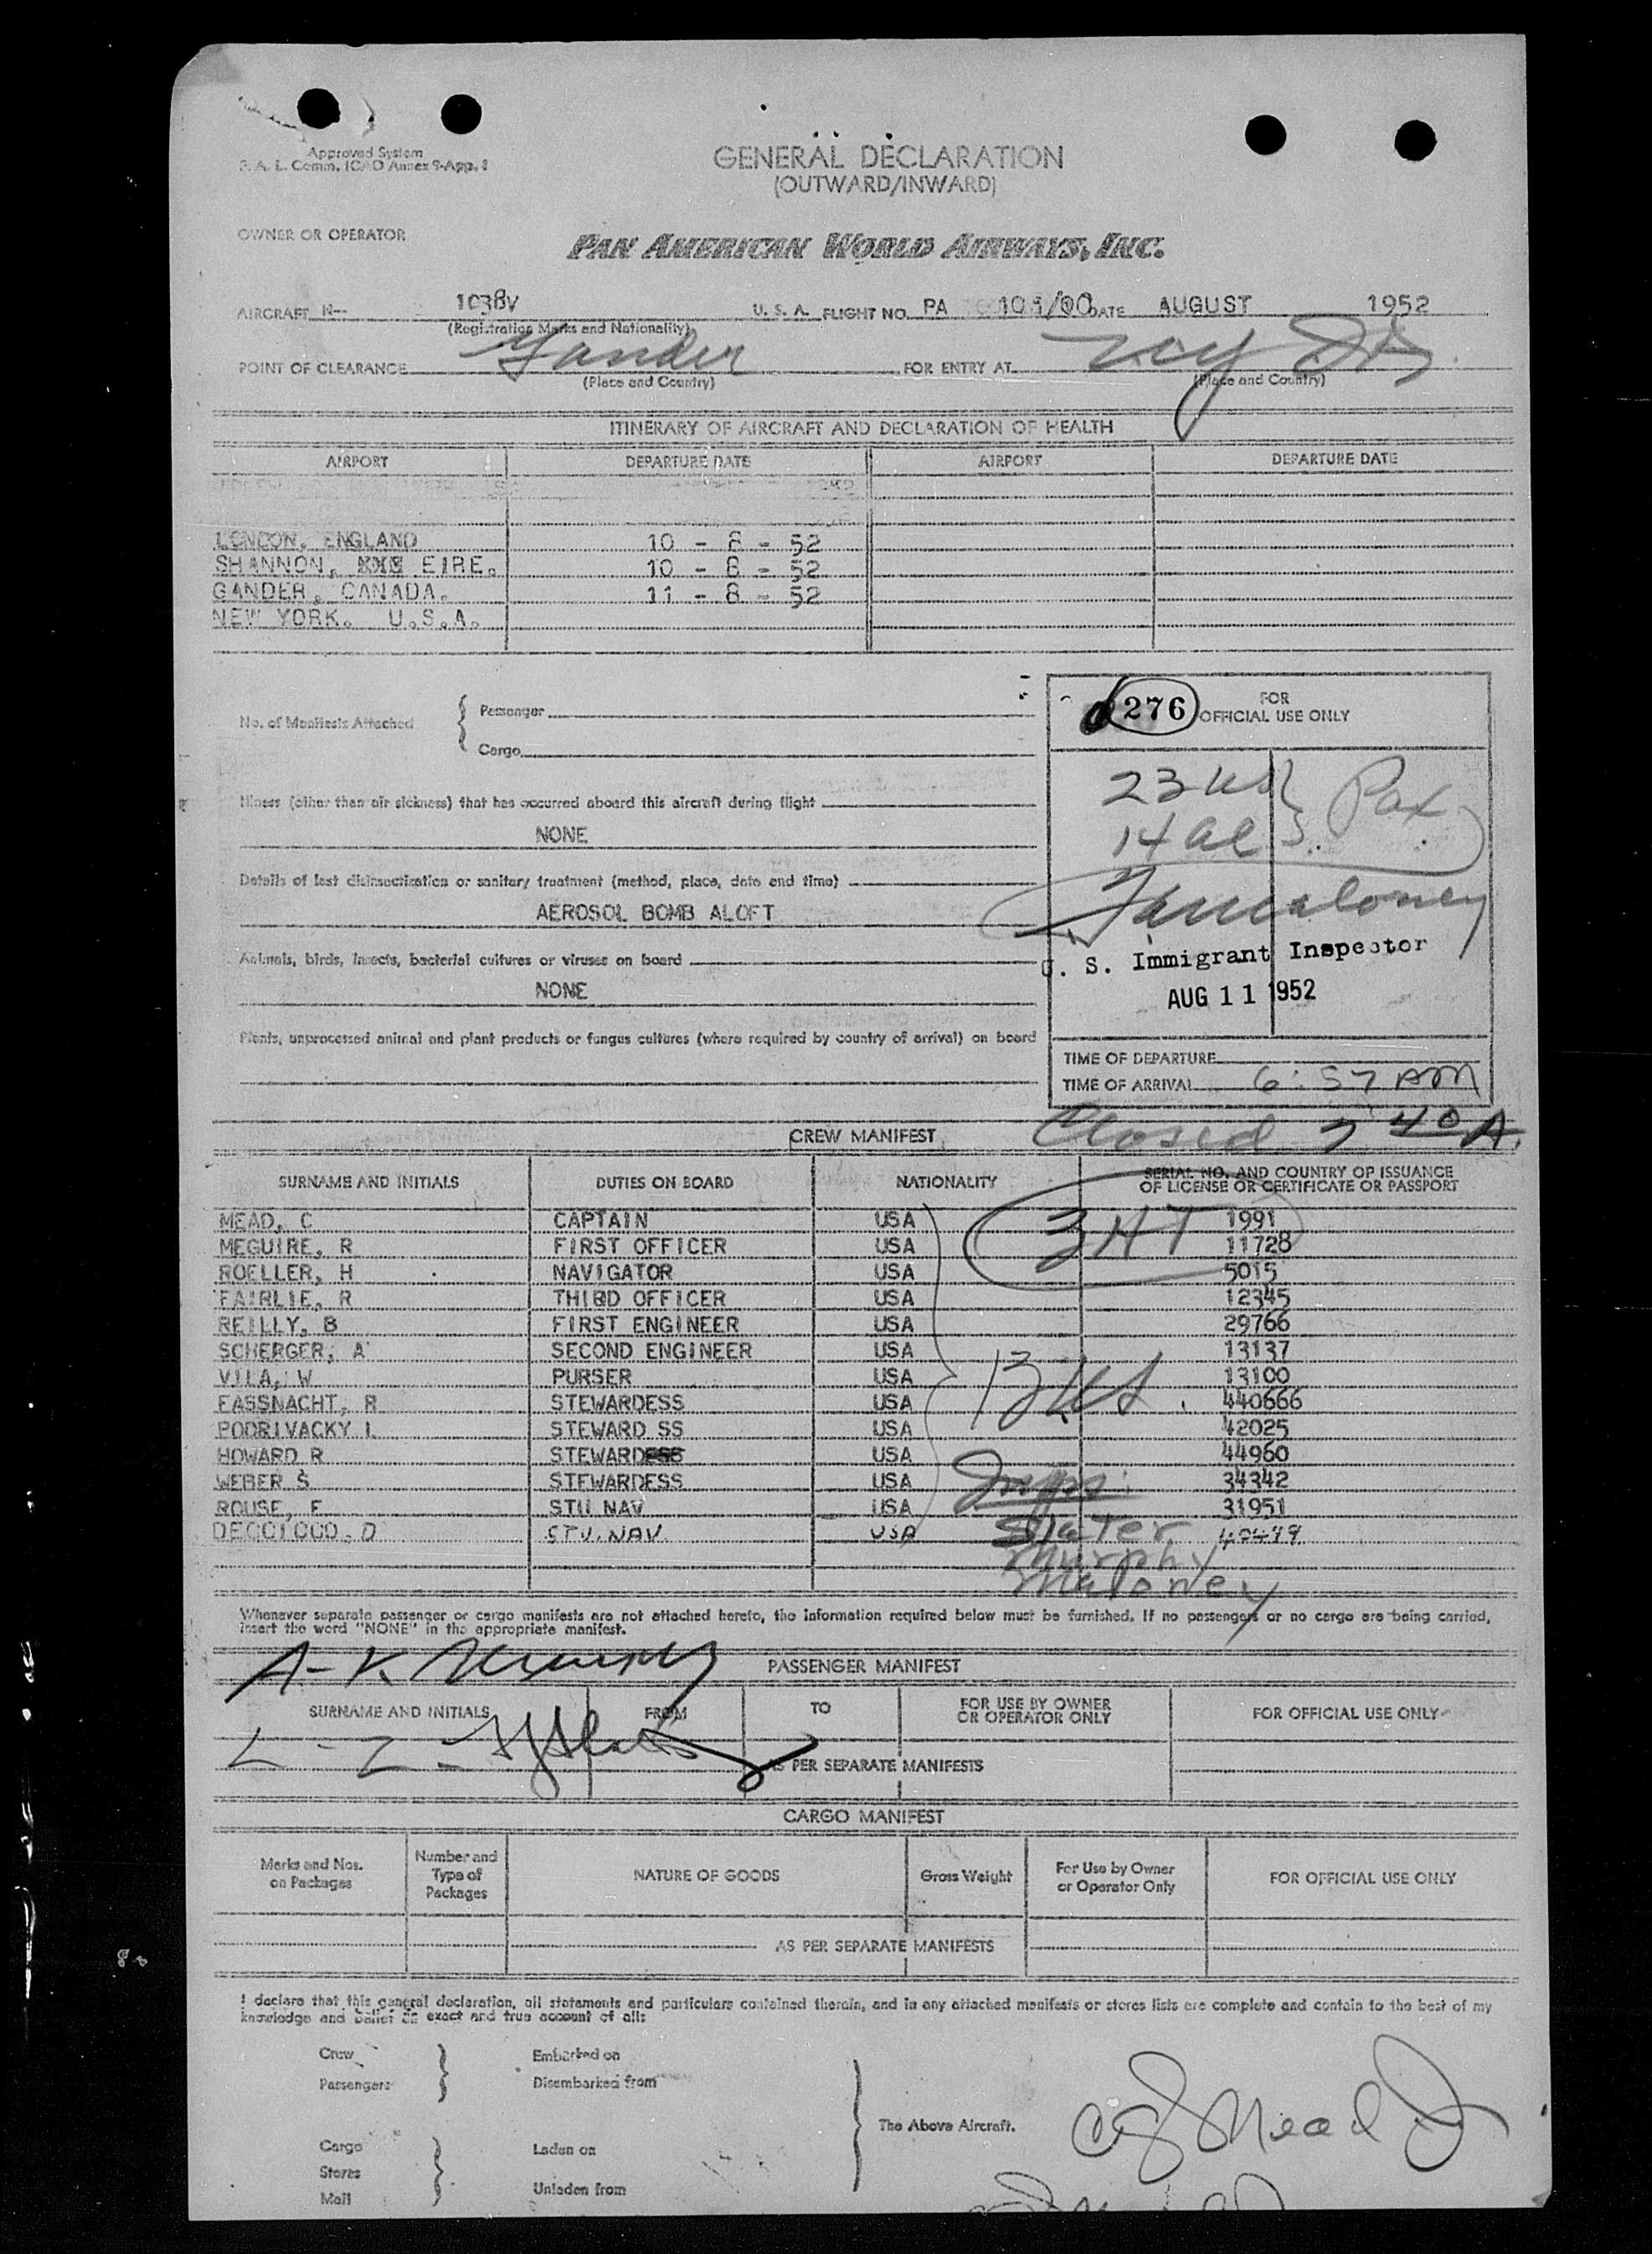 Approved System
F. A. L. Comm. ICAO Annex 9-App. 1
GENERAL DECLARATION
(OUTWARD/INWARD)
OWNER OR OPERATOR
PAN AMERICAN WORLD AIRWAYS, INC.
AIRCRAFT N-- 1038V U. S. A. FLIGHT NO. PA DATE AUGUST 1952
(Registration Marks and Nationality)
POINT OF CLEARANCE Gander FOR ENTRY AT
(Place and Country) (Place and Country)
ITINERARY OF AIRCRAFT AND DECLARATION OF HEALTH
AIRPORT DEPARTURE DATE AIRPORT DEPARTURE DATE
LONDON, ENGLAND 10 - 8 - 52
SHANNON, EIRE. 10 - 8 - 52
GANDER, CANADA. 11 - 8 - 52
NEW YORK. U.S.A.
276 FOR
OFFICIAL USE ONLY
No. of Manifests Attached { Passenger
Cargo
23 US } Pax
14 al
Illness (other than air sickness) that has occurred aboard this aircraft during flight
NONE
Details of last disinsectization or sanitary treatment (method, place, date and time)
AEROSOL BOMB ALOFT
Maloney
Animals, birds, insects, bacterial cultures or viruses on board
U. S. Immigrant Inspector
NONE
AUG 11 1952
Plants, unprocessed animal and plant products or fungus cultures (where required by country of arrival) on board
TIME OF DEPARTURE
TIME OF ARRIVAL 6:57 AM
Closed 7 40 A.
CREW MANIFEST
SURNAME AND INITIALS DUTIES ON BOARD NATIONALITY SERIAL NO. AND COUNTRY OF ISSUANCE
OF LICENSE OR CERTIFICATE OR PASSPORT
MEAD, C CAPTAIN USA 1991
MEGUIRE, R FIRST OFFICER USA 11728
ROELLER, H NAVIGATOR USA 5015
FAIRLIE, R THIRD OFFICER USA 12345
REILLY, B FIRST ENGINEER USA 29766
SCHERGER, A SECOND ENGINEER USA 13137
VILA, W PURSER USA 13100
FASSNACHT, R STEWARDESS USA 440666
PODRIVACKY L STEWARD SS USA 42025
HOWARD R STEWARD USA 44960
WEBER S STEWARDESS USA 34342
ROUSE, E STU NAV USA 31951
STU. NAV. USA
3 HT
13 US
Insps:
Slater
Murphy
Maloney
Whenever separate passenger or cargo manifests are not attached hereto, the information required below must be furnished. If no passengers or no cargo are being carried,
insert the word "NONE" in the appropriate manifest.
A-K Murphy
PASSENGER MANIFEST
SURNAME AND INITIALS FROM TO FOR USE BY OWNER
OR OPERATOR ONLY FOR OFFICIAL USE ONLY
L-Z-
AS PER SEPARATE MANIFESTS
CARGO MANIFEST
Marks and Nos.
on Packages
Number and
Type of
Packages
NATURE OF GOODS
Gross Weight
For Use by Owner
or Operator Only
FOR OFFICIAL USE ONLY
AS PER SEPARATE MANIFESTS
I declare that this general declaration, all statements and particulars contained therein, and in any attached manifests or stores lists are complete and contain to the best of my
knowledge and belief an exact and true account of all:
Crew Embarked on
Passengers Disembarked from
The Above Aircraft. Mead
Cargo Laden on
Stores
Mail Unladen from